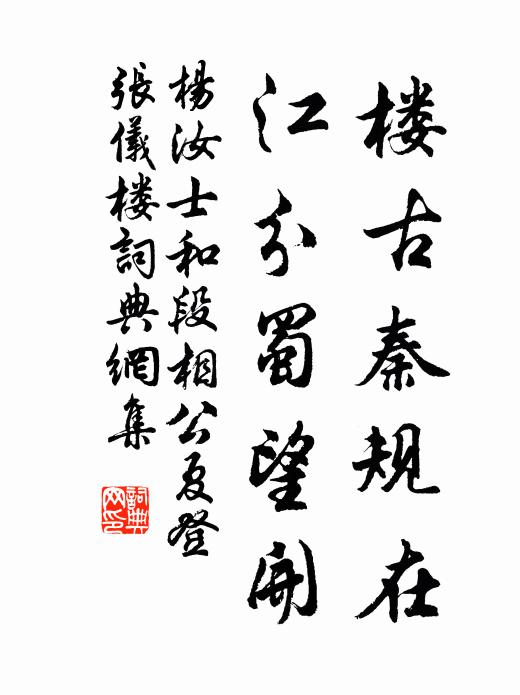 楼古秦规在
江分蜀望開
楊汝士和段相公夏登
張儀楼詞典網集
詞典网印